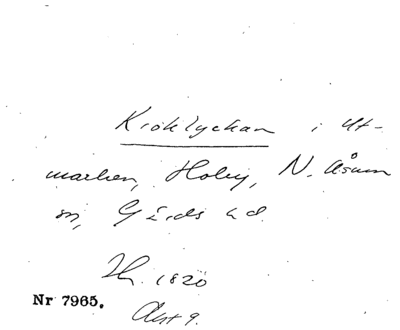 Kroklyckan i Ut-
marken, Holey, N. Åsum
sn, Gärds hd.
1820
Nr 7965.
Akt 9.